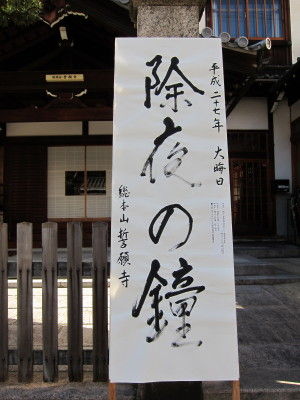 平成二十七年 大晦日
除夜の鐘
総本山誓願寺